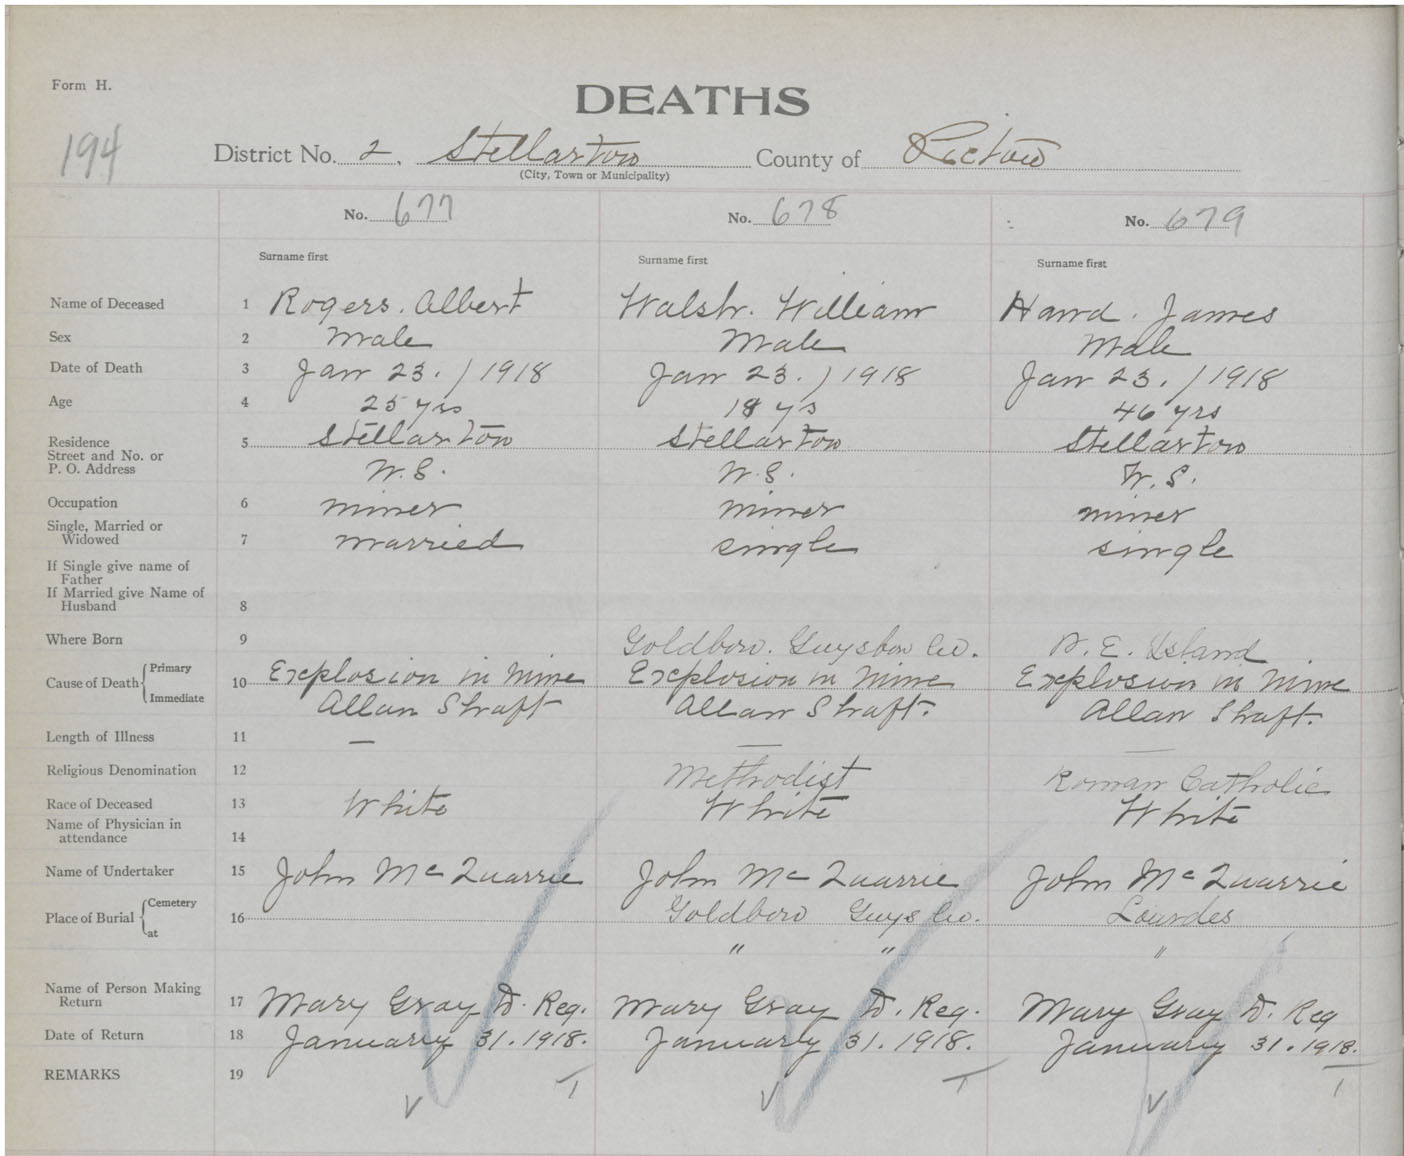 Form H.
DEATHS
194
District No. 2. Stellarton County of Pictou
(City, Town or Municipality)
No. 677 No. 678 No. 679
Surname first Surname first Surname first
Name of Deceased 1 Rogers. Albert Walsh. William Hand. James
Sex 2 Male Male Male
Date of Death 3 Jan 23. / 1918 Jan 23. / 1918 Jan 23. / 1918
Age 4 25 yrs yrs 46 yrs
Residence 5 Stellarton Stellarton Stellarton
Street and No. or
P. O. Address N.S. N.S. N.S.
Occupation 6 miner miner miner
Single, Married or
Widowed 7 married single single
If Single give name of
Father
If Married give Name of
Husband 8
Where Born 9 Goldboro. Guysboro Co. P. E. Island
Cause of Death { Primary 10 Explosion in Mine Explosion in Mine Explosion in Mine
Immediate Allan Shaft Allan Shaft. Allan Shaft.
Length of Illness 11 — — —
Religious Denomination 12 Methodist Roman Catholic
Race of Deceased 13 White White White
Name of Physician in
attendance 14
Name of Undertaker 15 John McQuarrie John McQuarrie John McQuarrie
Place of Burial { Cemetery 16 Goldboro Guys Co. Lourdes
at " " "
Name of Person Making
Return 17 Mary Gray D. Reg. Mary Gray D. Reg. Mary Gray D. Reg
Date of Return 18 January 31. 1918. January 31. 1918. January 31. 1918.
REMARKS 19